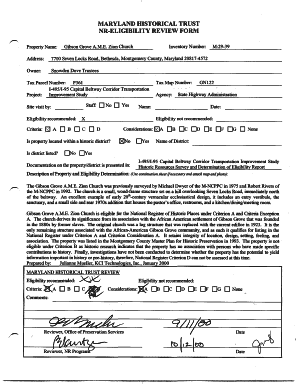 MARYLAND HISTORICAL TRUST
NR-ELIGIBILITY REVIEW FORM
Property Name: Gibson Grove A.M.E. Zion Church Inventory Number: M:29-39
Address: 7700 Seven Locks Road, Bethesda, Montgomery County, Maryland 20817-4572
Owner: Snowden Dove Trustees
Tax Parcel Number: Tax Map Number: GN122
Project: I-495/I-95 Capital Beltway Corridor Transportation Improvement Study Agency: State Highway Administration
Site visit by: Staff No Yes Name: Date:
Eligibility recommended: X Eligibility not recommended:
Criteria: A B C D Considerations: A B C D E F G None
Is property located within a historic district? No Yes Name of District:
Is district listed? No Yes
Documentation on the property/district is presented in: I-495/I-95 Capital Beltway Corridor Transportation Improvement Study Historic Resources Survey and Determination of Eligibility Report
Description of Property and Eligibility Determination: (Use continuation sheet if necessary and attach map and photo)
The Gibson Grove A.M.E. Zion Church was previously surveyed by Michael Dwyer of the M-NCPPC in 1975 and Robert Rivers of
the M-NCPPC in 1992. The church is a small, wood-frame structure set on a hill overlooking Seven Locks Road, immediately north
of the beltway. An excellent example of early 20th-century vernacular ecclesiastical design, it includes an entry vestibule, the
sanctuary, and a small side and rear 1970s addition that houses the pastor's office, restrooms, and a kitchen/dining/meeting room.
Gibson Grove A.M.E. Zion Church is eligible for the National Register of Historic Places under Criterion A and Criteria Exception
A. The church derives its significance from its association with the African-American settlement of Gibson Grove that was founded
in the 1880s by former slaves. The original church was a log structure that was replaced with the current edifice in 1923. It is the
only remaining structure associated with the African-American Gibson Grove community, and as such it qualifies for listing in the
National Register under Criterion A and Criterion Consideration A. It retains integrity of location, design, setting, feeling, and
association. The property was listed in the Montgomery County Master Plan for Historic Preservation in 1993. The property is not
eligible under Criterion B as historic research indicates that the property has no association with persons who have made specific
contributions to history. Finally, investigations have not been conducted to determine whether the property has the potential to yield
information important to history or pre-history, therefore, National Register Criterion D can not be assessed at this time.
Prepared by: Julianne Mueller, KCI Technologies, Inc., January 2000
MARYLAND HISTORICAL TRUST REVIEW
Eligibility recommended: Eligibility not recommended:
Criteria: A B C D Considerations: A B C D E F G None
Comments:
9/11/00
Reviewer, Office of Preservation Services Date
10/12/00
Reviewer, NR Program Date